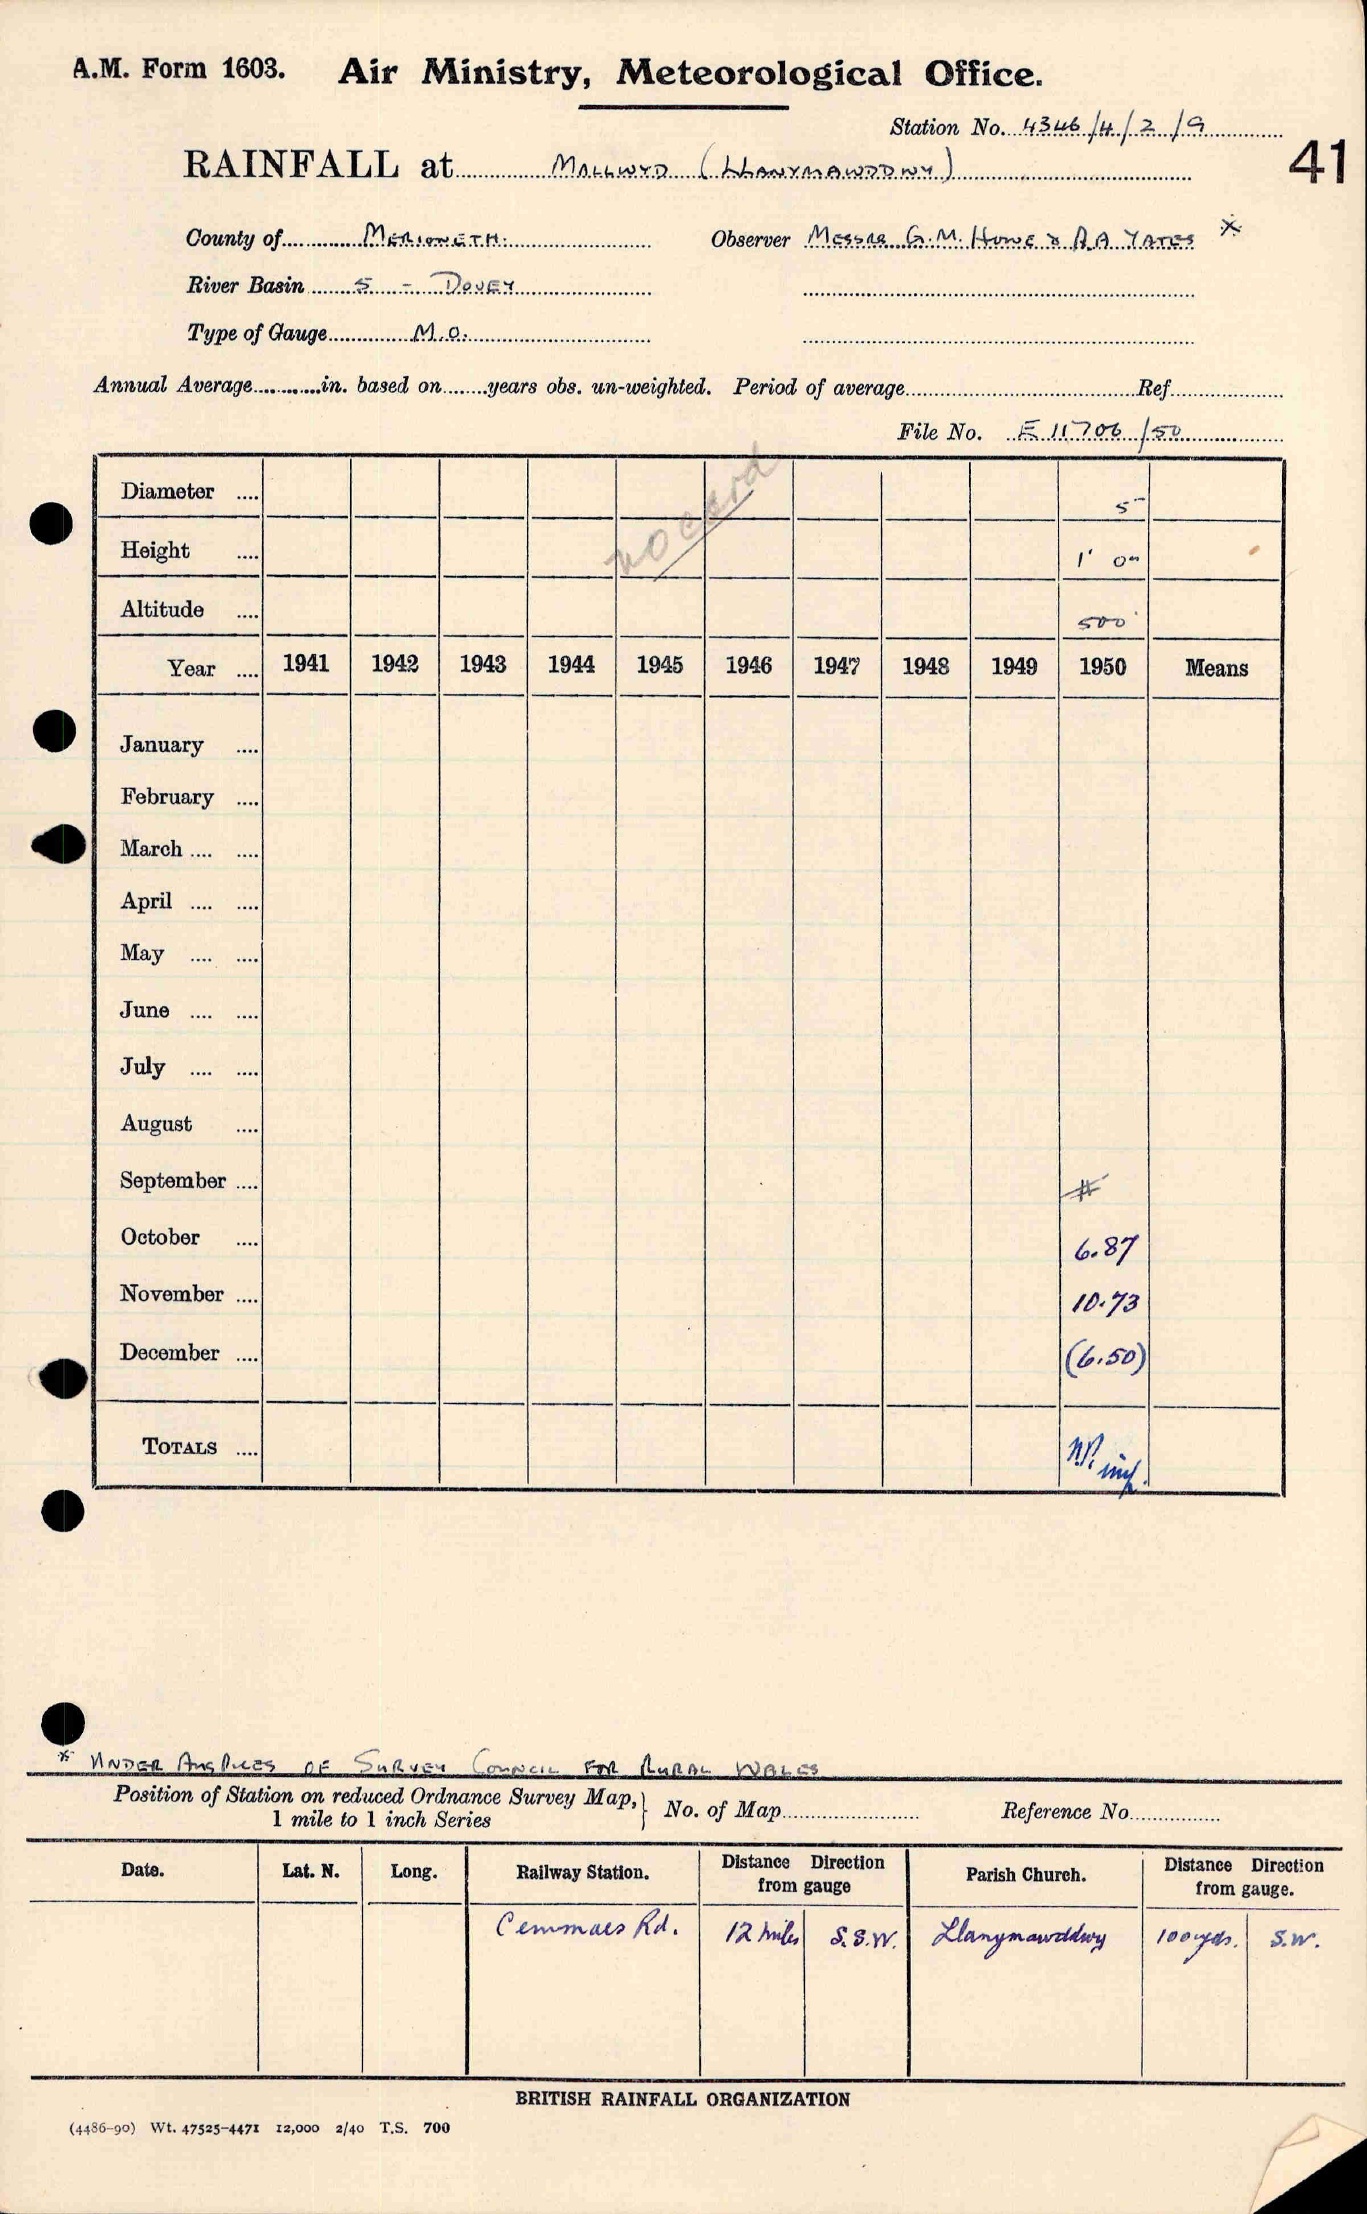 A.M. Form 1603. Air Ministry, Meteorological Office.
Station No. 4346/4/2/9
41
RAINFALL at MALLWYD (LLANYMAWDDWY)
County of MERIONETH. Observer MESSRS G.M. HOWE & A.A YATES *
River Basin 5 - DOVEY
Type of Gauge M.O.
Annual Average in. based on years obs. un-weighted. Period of average Ref
File No. E 11706/50
no card
Diameter .... 5"
Height .... 1' 0"
Altitude .... 500'
Year .... 1941 1942 1943 1944 1945 1946 1947 1948 1949 1950 Means
January ....
February ....
March .... ....
April .... ....
May .... ....
June .... ....
July .... ....
August ....
September .... #
October .... 6.87
November .... 10.73
December .... (6.50)
TOTALS ....
* UNDER AUSPICES OF SURVEY COUNCIL FOR RURAL WALES
Position of Station on reduced Ordnance Survey Map, 1 mile to 1 inch Series } No. of Map Reference No.
Date. Lat. N. Long. Railway Station. Distance Direction from gauge Parish Church. Distance Direction from gauge.
Cemmaes Rd. 12 miles S.S.W. Llanymawddwy 100 yds. S.W.
BRITISH RAINFALL ORGANIZATION
(4486-90) Wt. 47525-4471 12,000 2/40 T.S. 700